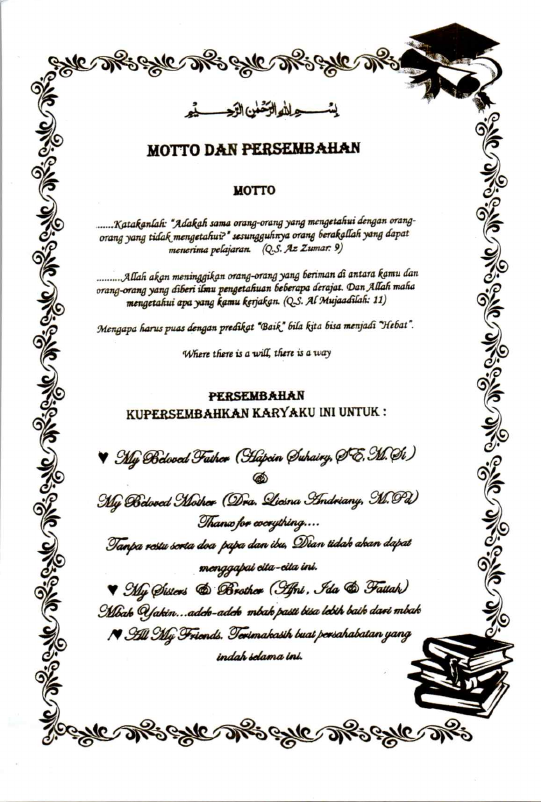 بِسْمِ اللهِ الرَّحْمٰنِ الرَّحِيْمِ
MOTTO DAN PERSEMBAHAN
MOTTO
.......Katakanlah: "Adakah sama orang-orang yang mengetahui dengan orang-
orang yang tidak mengetahui?" sesungguhnya orang berakallah yang dapat
menerima pelajaran. (Q.S. Az Zumar: 9)
..........Allah akan meninggikan orang-orang yang beriman di antara kamu dan
orang-orang yang diberi ilmu pengetahuan beberapa derajat. Dan Allah maha
mengetahui apa yang kamu kerjakan. (Q.S. Al Mujaadilah: 11)
Mengapa harus puas dengan predikat "Baik" bila kita bisa menjadi "Hebat".
Where there is a will, there is a way
PERSEMBAHAN
KUPERSEMBAHKAN KARYAKU INI UNTUK :
♥ My Beloved Father (Hapcin Suhairy, SE, M.Si)
&
My Beloved Mother (Dra. Liesna Andriany, M.Pd)
Thanx for everything....
Tanpa restu serta doa papa dan ibu, Dian tidak akan dapat
menggapai cita-cita ini.
♥ My Sisters & Brother (Afni, Ida & Fattah)
Mbak Yakin...adek-adek mbak pasti bisa lebih baik dari mbak
♥ All My Friends. Terimakasih buat persahabatan yang
indah selama ini.